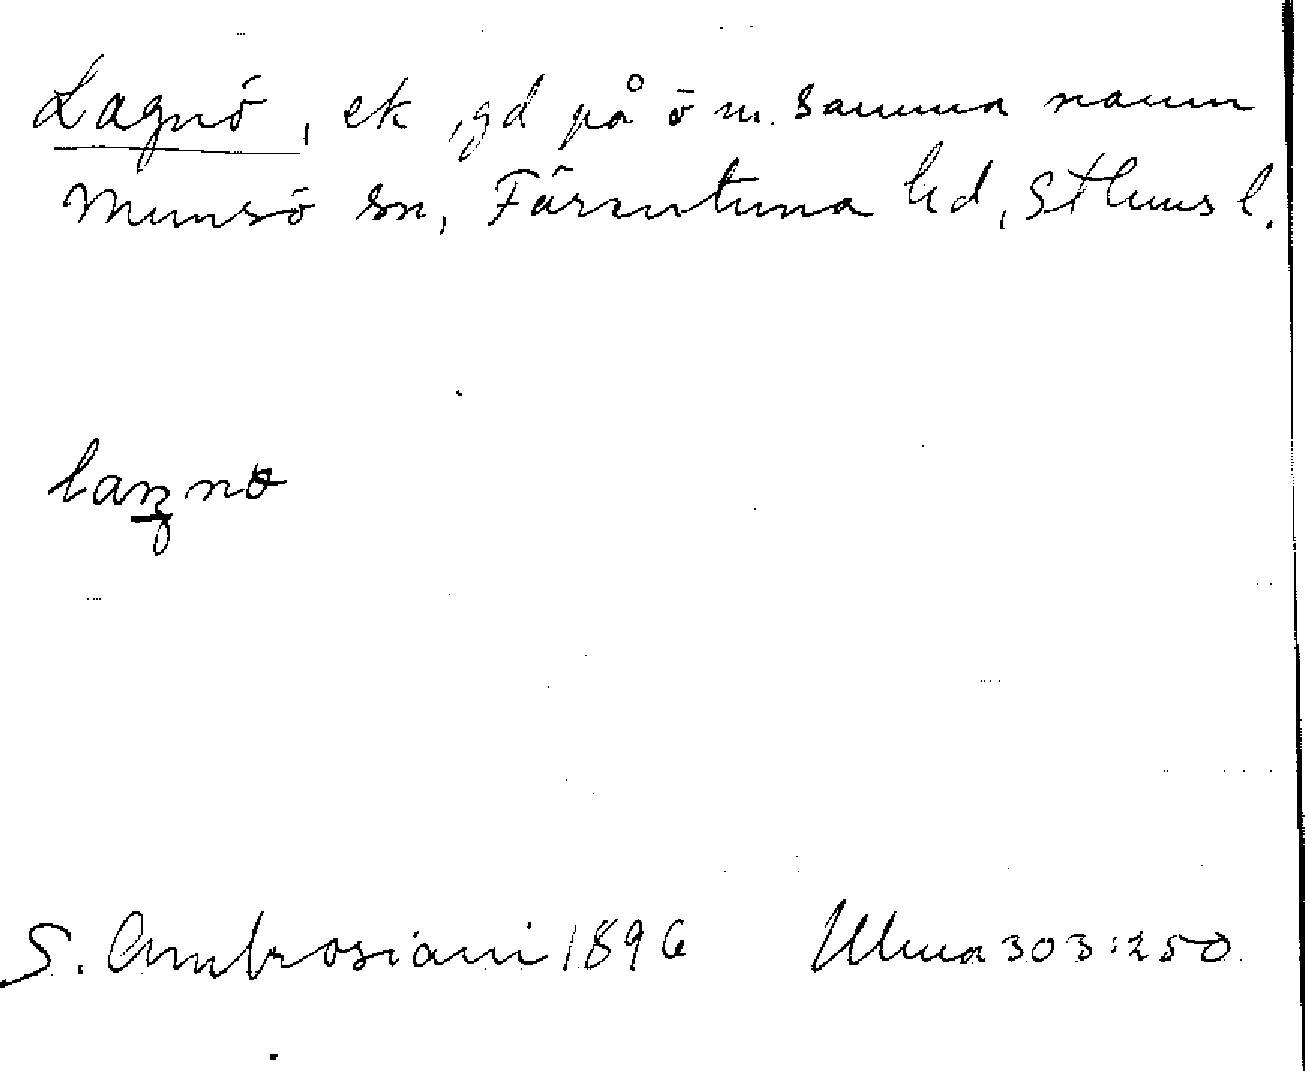 Lagnö, ek, gd på ö m. samma namn
Munsö sn, Färentuna hd, Sthms l.
S. Ambrosiani 1896 Ulma 303:250.